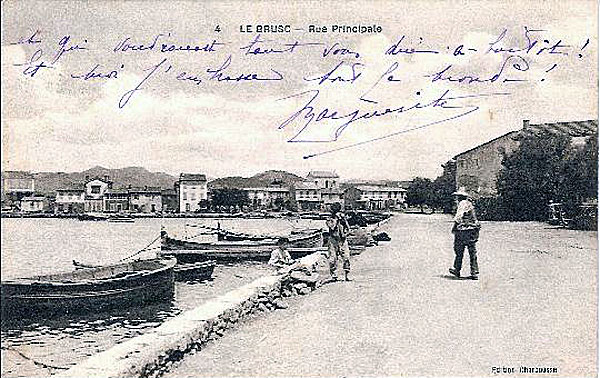 4 LE BRUSC – Rue Principale
et qui voudraient tant vous dire à bientôt !
Et moi j'embrasse tout le monde !
Marguerite
Edition Charpousse